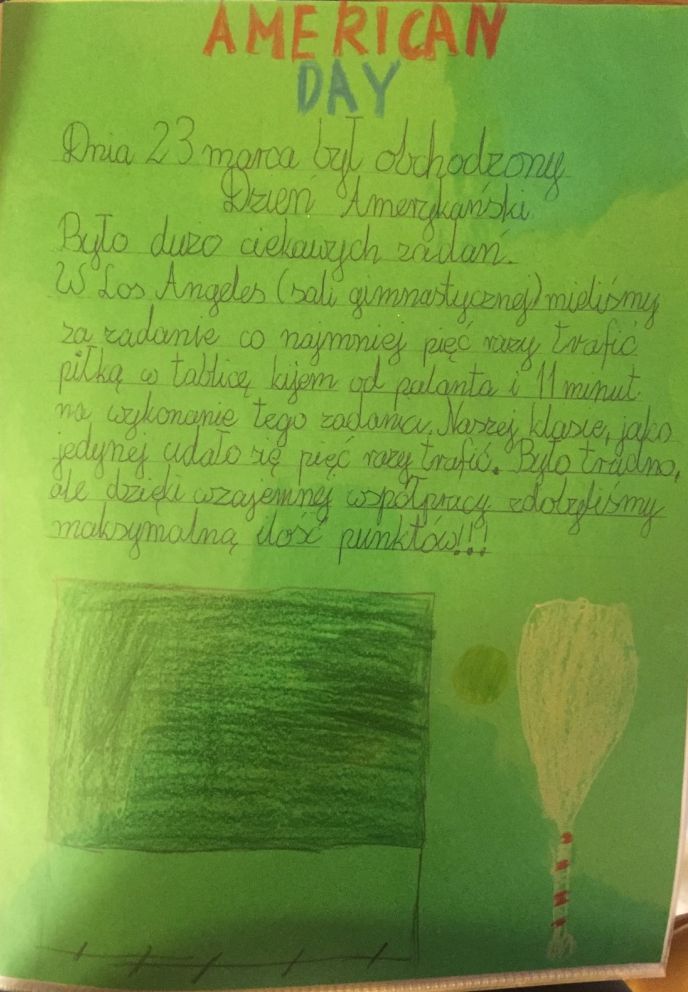 AMERICAN
DAY
Dnia 23 marca był obchodzony
Dzień Amerykański
Było dużo ciekawych zadań.
W Los Angeles (sali gimnastycznej) mieliśmy
za zadanie co najmniej pięć razy trafić
piłką w tablicę kijem od palanta i 11 minut
na wykonanie tego zadania. Naszej klasie, jako
jedynej udało się pięć razy trafić. Było trudno,
ale dzięki wzajemnej współpracy zdobyliśmy
maksymalną ilość punktów!!!